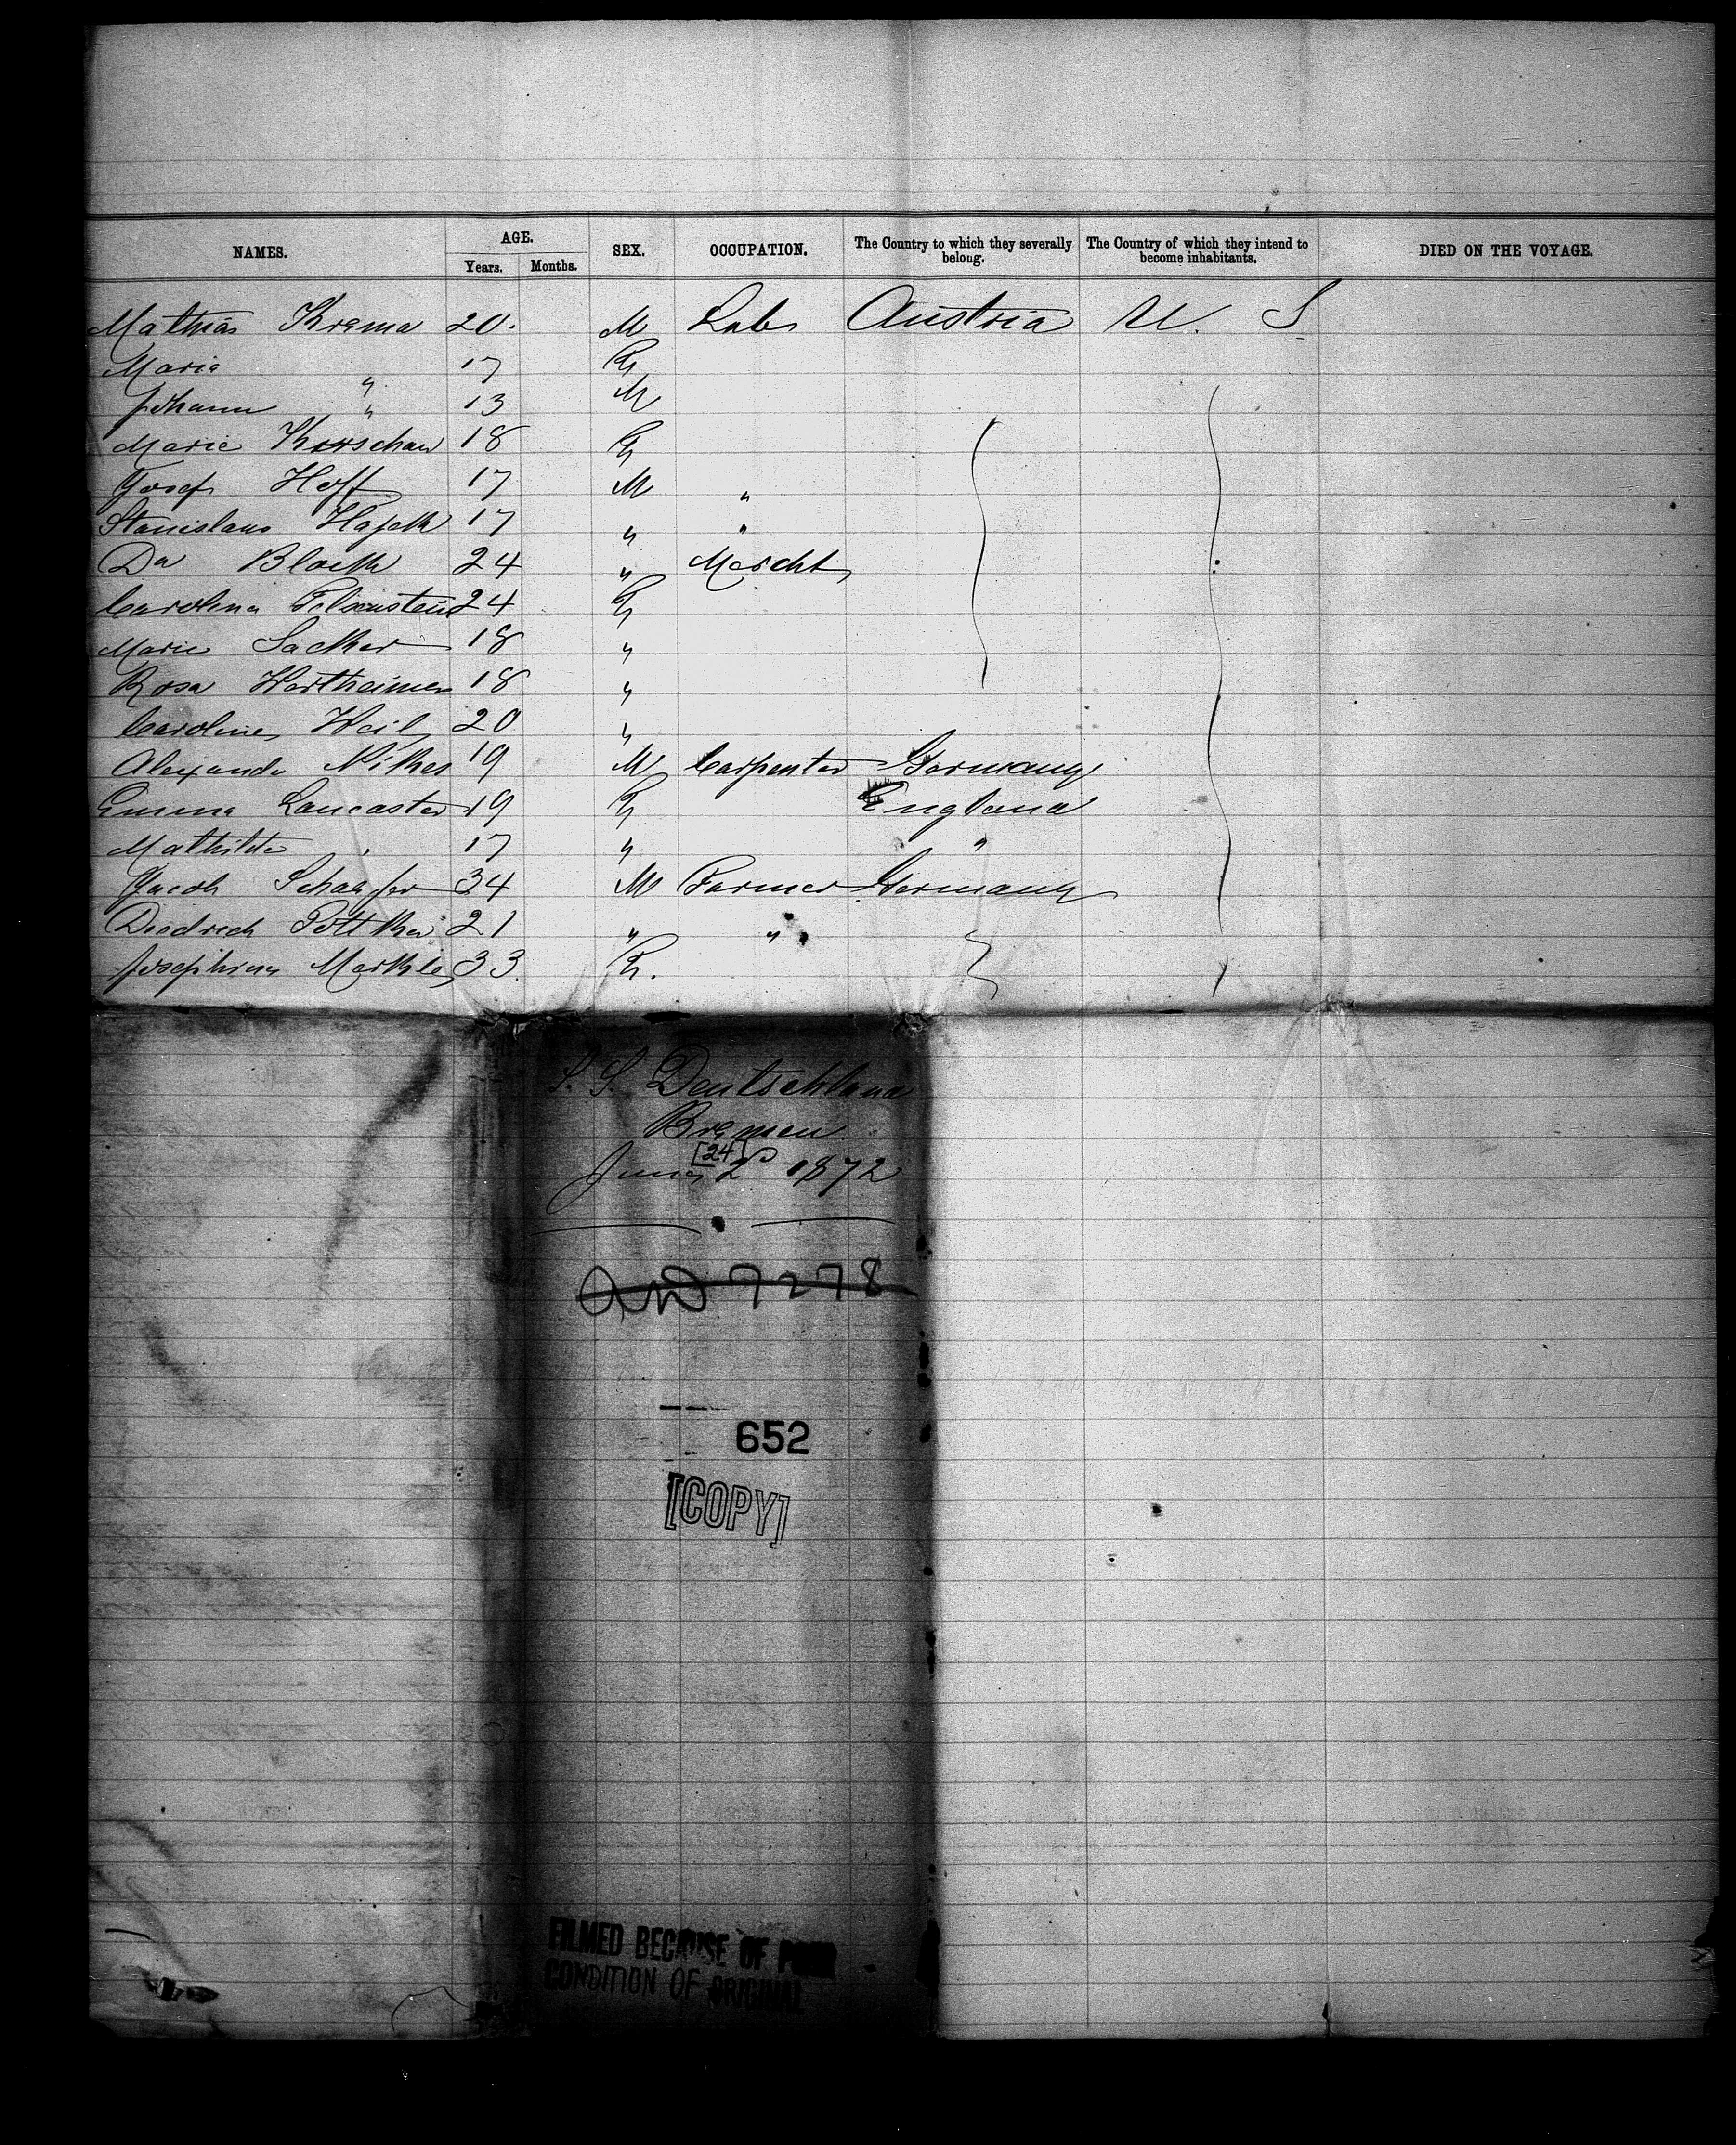 NAMES. AGE. SEX. OCCUPATION. The Country to which they severally belong. The Country of which they intend to become inhabitants. DIED ON THE VOYAGE.
Years. Months.
Mathias Krema 20. M Lab Austria U. S
Marie " 17 F
Johann " 13 M
Marie 18 F
Josef Hoff 17 M "
Stanislaus 17 " "
24 " Mercht
Carolina 24 F
Marie Sacher 18 "
Rosa Wertheimer 18 "
Caroline Weil 20 "
Alexander 19 M Carpenter Germany
Emma Lancaster 19 F England
Mathilde " 17 " "
Jacob Schaefer 34 M Farmer Germany
Diedrich 21 " "
Josephina Merkle 33. F.
S. S. Deutschland
Bremen
[24]
June 2 1872
7278
652
[COPY]
FILMED BECAUSE OF POOR
CONDITION OF ORIGINAL